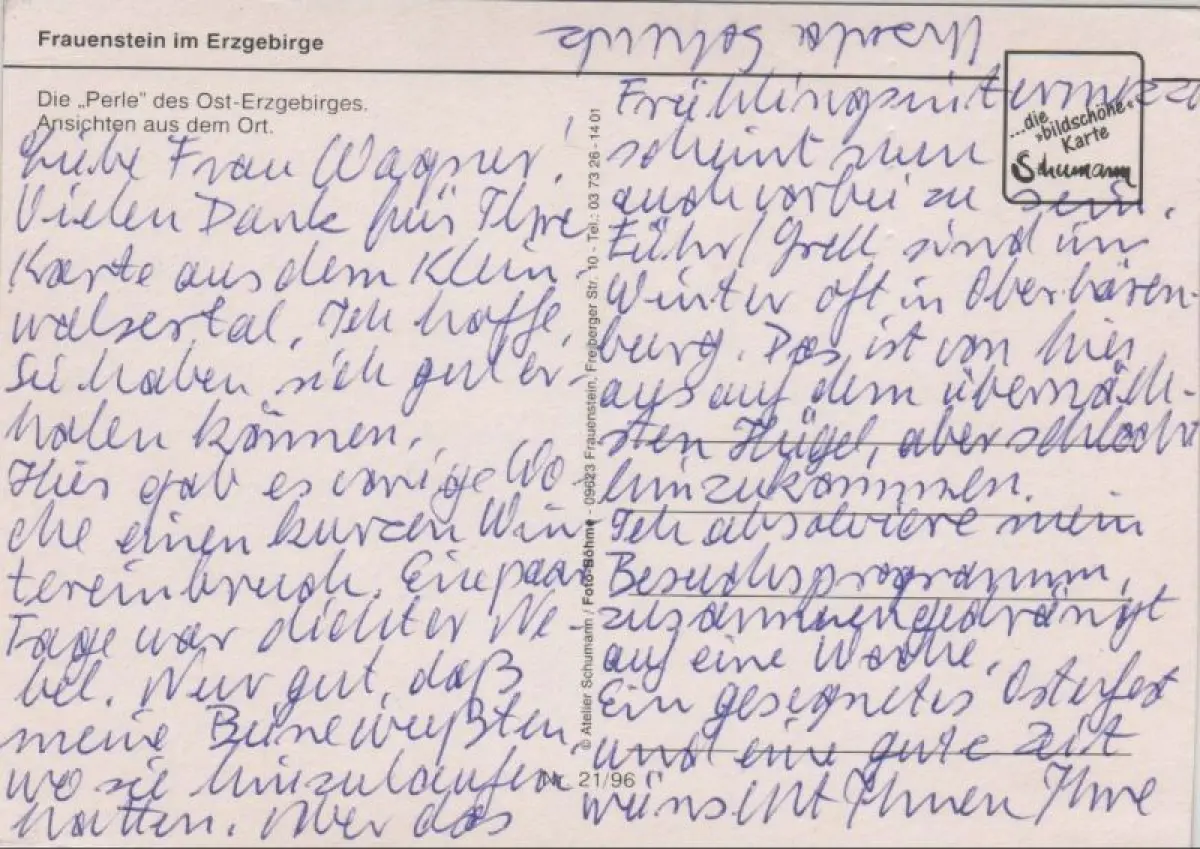 Frauenstein im Erzgebirge
Die „Perle" des Ost-Erzgebirges.
Ansichten aus dem Ort.
Liebe Frau Wagner!
Vielen Dank für Ihre
Karte aus dem Klein-
walsertal. Ich hoffe,
Sie haben sich gut er-
holen können.
Hier gab es vorige Wo-
che einen kurzen Win
tereinbruch. Ein paar
Tage war dichter Ne-
bel. Nur gut, daß
meine Beine wußten,
wo sie hinzulaufen
hatten. Aber das
© Atelier Schumann / Foto-Böhme - 09623 Frauenstein, Freiberger Str. 10 - Tel.: 03 73 26 - 14 01
Nr. 21/96
...die
»bildschöne«
Karte
Schumann
Frühlingsintermezzo
scheint nun
auch vorbei zu sein.
sind im
Winter oft in Oberbären-
burg. Das ist von hier
aus auf dem übernäch-
sten Hügel, aber schlecht
hinzukommen.
Ich absolviere mein
Besuchsprogramm,
zusammengedrängt
auf eine Woche.
Ein gesegnetes Osterfest
und eine gute Zeit
wünscht Ihnen Ihre